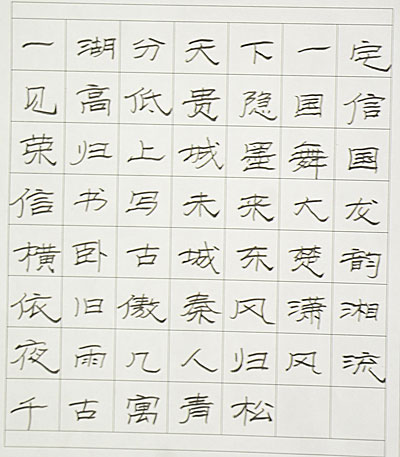 一湖分天下一定
见高低贵隐国信
荣归上城墨舞国
信书写未来大龙
横卧古城东楚韵
依旧傲秦风潇湘
夜雨几人归风流
千古寓青松